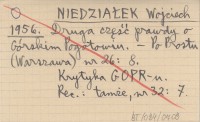 O NIEDZIAŁEK Wojciech
1956. Druga część prawdy o
Górskim Pogotowiu. – Po Prostu
(Warszawa) nr 26: 8.
Krytyka GOPR-u.
Rec.: tamże, nr 32: 7.